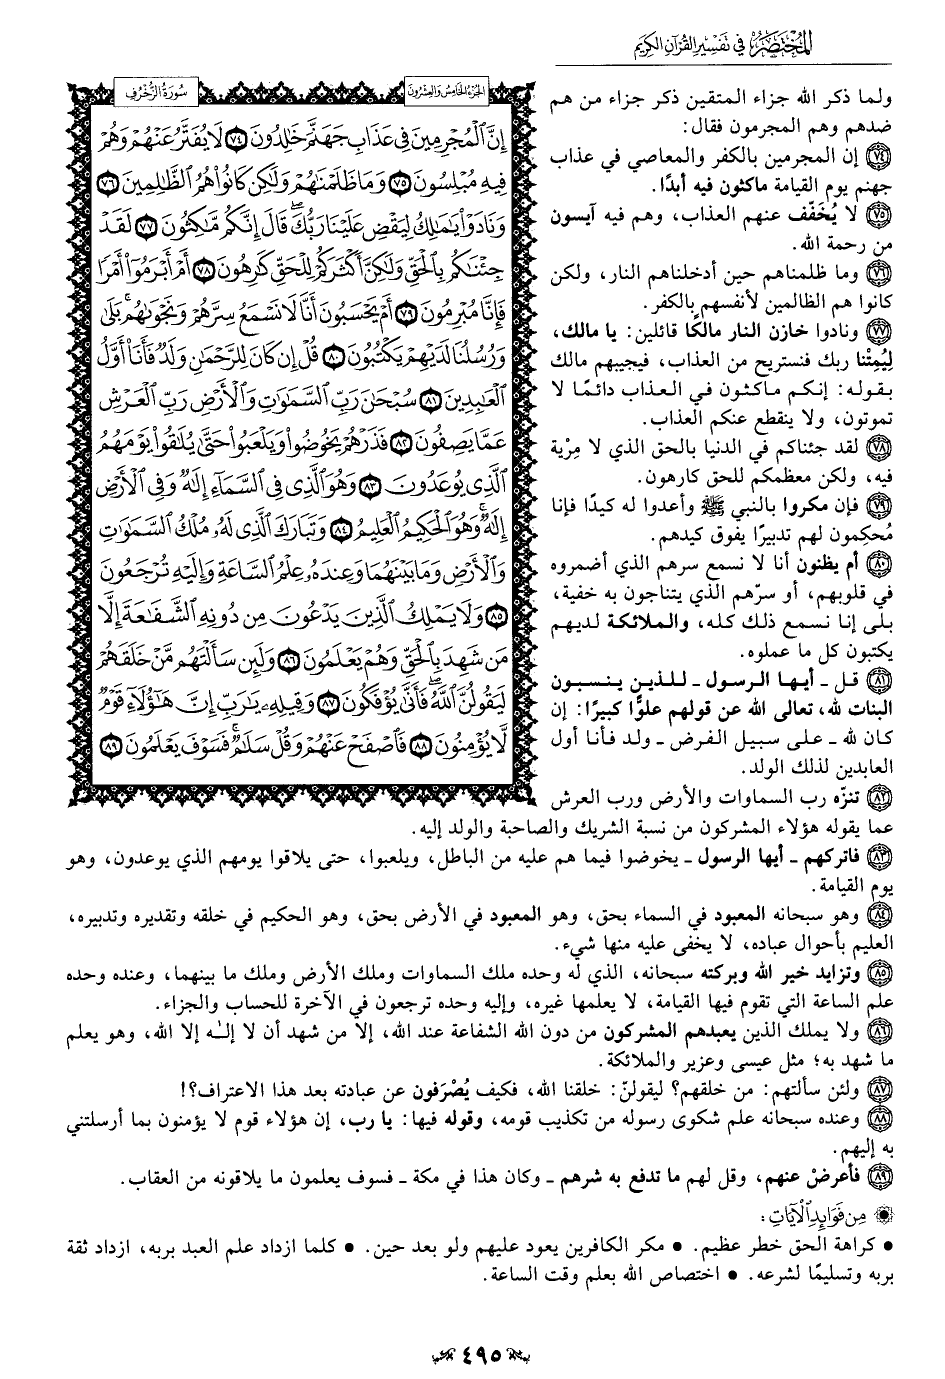 المختصر في تفسير القرآن الكريم
الجزء الخامس والعشرون
سورة الزخرف
إِنَّ ٱلْمُجْرِمِينَ فِى عَذَابِ جَهَنَّمَ خَٰلِدُونَ ٧٤ لَا يُفَتَّرُ عَنْهُمْ وَهُمْ
فِيهِ مُبْلِسُونَ ٧٥ وَمَا ظَلَمْنَٰهُمْ وَلَٰكِن كَانُوا۟ هُمُ ٱلظَّٰلِمِينَ ٧٦
وَنَادَوْا۟ يَٰمَٰلِكُ لِيَقْضِ عَلَيْنَا رَبُّكَ ۖ قَالَ إِنَّكُم مَّٰكِثُونَ ٧٧ لَقَدْ
جِئْنَٰكُم بِٱلْحَقِّ وَلَٰكِنَّ أَكْثَرَكُمْ لِلْحَقِّ كَٰرِهُونَ ٧٨ أَمْ أَبْرَمُوٓا۟ أَمْرًا
فَإِنَّا مُبْرِمُونَ ٧٩ أَمْ يَحْسَبُونَ أَنَّا لَا نَسْمَعُ سِرَّهُمْ وَنَجْوَىٰهُم ۚ بَلَىٰ
وَرُسُلُنَا لَدَيْهِمْ يَكْتُبُونَ ٨٠ قُلْ إِن كَانَ لِلرَّحْمَٰنِ وَلَدٌ فَأَنَا۠ أَوَّلُ
ٱلْعَٰبِدِينَ ٨١ سُبْحَٰنَ رَبِّ ٱلسَّمَٰوَٰتِ وَٱلْأَرْضِ رَبِّ ٱلْعَرْشِ
عَمَّا يَصِفُونَ ٨٢ فَذَرْهُمْ يَخُوضُوا۟ وَيَلْعَبُوا۟ حَتَّىٰ يُلَٰقُوا۟ يَوْمَهُمُ
ٱلَّذِى يُوعَدُونَ ٨٣ وَهُوَ ٱلَّذِى فِى ٱلسَّمَآءِ إِلَٰهٌ وَفِى ٱلْأَرْضِ
إِلَٰهٌ ۚ وَهُوَ ٱلْحَكِيمُ ٱلْعَلِيمُ ٨٤ وَتَبَارَكَ ٱلَّذِى لَهُۥ مُلْكُ ٱلسَّمَٰوَٰتِ
وَٱلْأَرْضِ وَمَا بَيْنَهُمَا وَعِندَهُۥ عِلْمُ ٱلسَّاعَةِ وَإِلَيْهِ تُرْجَعُونَ
٨٥ وَلَا يَمْلِكُ ٱلَّذِينَ يَدْعُونَ مِن دُونِهِ ٱلشَّفَٰعَةَ إِلَّا
مَن شَهِدَ بِٱلْحَقِّ وَهُمْ يَعْلَمُونَ ٨٦ وَلَئِن سَأَلْتَهُم مَّنْ خَلَقَهُمْ
لَيَقُولُنَّ ٱللَّهُ ۖ فَأَنَّىٰ يُؤْفَكُونَ ٨٧ وَقِيلِهِۦ يَٰرَبِّ إِنَّ هَٰٓؤُلَآءِ قَوْمٌ
لَّا يُؤْمِنُونَ ٨٨ فَٱصْفَحْ عَنْهُمْ وَقُلْ سَلَٰمٌ ۚ فَسَوْفَ يَعْلَمُونَ ٨٩
ولما ذكر الله جزاء المتقين ذكر جزاء من هم
ضدهم وهم المجرمون فقال:
٧٤ إن المجرمين بالكفر والمعاصي في عذاب
جهنم يوم القيامة ماكثون فيه أبدًا.
٧٥ لا يُخَفّف عنهم العذاب، وهم فيه آيسون
من رحمة الله.
٧٦ وما ظلمناهم حين أدخلناهم النار، ولكن
كانوا هم الظالمين لأنفسهم بالكفر.
٧٧ ونادوا خازن النار مالكًا قائلين: يا مالك،
لِيُمِتْنا ربك فنستريح من العذاب، فيجيبهم مالك
بقوله: إنكم ماكثون في العذاب دائمًا لا
تموتون، ولا ينقطع عنكم العذاب.
٧٨ لقد جئناكم في الدنيا بالحق الذي لا مِرْية
فيه، ولكن معظمكم للحق كارهون.
٧٩ فإن مكروا بالنبي ﷺ وأعدوا له كيدًا فإنا
مُحكِمون لهم تدبيرًا يفوق كيدهم.
٨٠ أم يظنون أنا لا نسمع سرهم الذي أضمروه
في قلوبهم، أو سرّهم الذي يتناجون به خفية،
بلى إنا نسمع ذلك كله، والملائكة لديهم
يكتبون كل ما عملوه.
٨١ قل ـ أيها الرسول ـ للذين ينسبون
البنات لله، تعالى الله عن قولهم علوًّا كبيرًا: إن
كان لله ـ على سبيل الفرض ـ ولد فأنا أول
العابدين لذلك الولد.
٨٢ تنزّه رب السماوات والأرض ورب العرش
عما يقوله هؤلاء المشركون من نسبة الشريك والصاحبة والولد إليه.
٨٣ فاتركهم ـ أيها الرسول ـ يخوضوا فيما هم عليه من الباطل، ويلعبوا، حتى يلاقوا يومهم الذي يوعدون، وهو
يوم القيامة.
٨٤ وهو سبحانه المعبود في السماء بحق، وهو المعبود في الأرض بحق، وهو الحكيم في خلقه وتقديره وتدبيره،
العليم بأحوال عباده، لا يخفى عليه منها شيء.
٨٥ وتزايد خير الله وبركته سبحانه، الذي له وحده ملك السماوات وملك الأرض وملك ما بينهما، وعنده وحده
علم الساعة التي تقوم فيها القيامة، لا يعلمها غيره، وإليه وحده ترجعون في الآخرة للحساب والجزاء.
٨٦ ولا يملك الذين يعبدهم المشركون من دون الله الشفاعة عند الله، إلا من شهد أن لا إلـٰه إلا الله، وهو يعلم
ما شهد به؛ مثل عيسى وعزير والملائكة.
٨٧ ولئن سألتهم: من خلقهم؟ ليقولنّ: خلقنا الله، فكيف يُصْرَفون عن عبادته بعد هذا الاعتراف؟!
٨٨ وعنده سبحانه علم شكوى رسوله من تكذيب قومه، وقوله فيها: يا رب، إن هؤلاء قوم لا يؤمنون بما أرسلتني
به إليهم.
٨٩ فأعرضْ عنهم، وقل لهم ما تدفع به شرهم ـ وكان هذا في مكة ـ فسوف يعلمون ما يلاقونه من العقاب.
مِن فَوَائِدِ الآيَاتِ:
• كراهة الحق خطر عظيم. • مكر الكافرين يعود عليهم ولو بعد حين. • كلما ازداد علم العبد بربه، ازداد ثقة
بربه وتسليمًا لشرعه. • اختصاص الله بعلم وقت الساعة.
٤٩٥